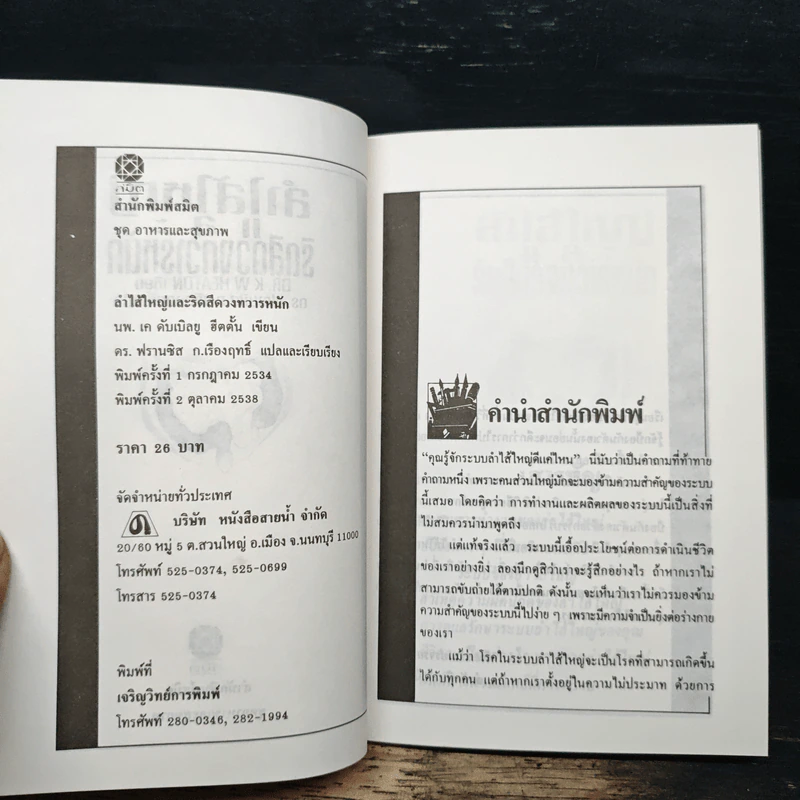 สมิต
สำนักพิมพ์สมิต
ชุด อาหารและสุขภาพ
ลำไส้ใหญ่และริดสีดวงทวารหนัก
นพ. เค ดับเบิลยู ฮีตตั้น เขียน
ดร. ฟรานซิส ก.เรืองฤทธิ์ แปลและเรียบเรียง
พิมพ์ครั้งที่ 1 กรกฎาคม 2534
พิมพ์ครั้งที่ 2 ตุลาคม 2538
ราคา 26 บาท
จัดจำหน่ายทั่วประเทศ
บริษัท หนังสือสายน้ำ จำกัด
20/60 หมู่ 5 ต.สวนใหญ่ อ.เมือง จ.นนทบุรี 11000
โทรศัพท์ 525-0374, 525-0699
โทรสาร 525-0374
พิมพ์ที่
เจริญวิทย์การพิมพ์
โทรศัพท์ 280-0346, 282-1994
คำนำสำนักพิมพ์
"คุณรู้จักระบบลำไส้ใหญ่ดีแค่ไหน" นี่นับว่าเป็นคำถามที่ท้าทาย
คำถามหนึ่ง เพราะคนส่วนใหญ่มักจะมองข้ามความสำคัญของระบบ
นี้เสมอ โดยคิดว่า การทำงานและผลิตผลของระบบนี้เป็นสิ่งที่
ไม่สมควรนำมาพูดถึง
แต่แท้จริงแล้ว ระบบนี้เอื้อประโยชน์ต่อการดำเนินชีวิต
ของเราอย่างยิ่ง ลองนึกดูสิว่าเราจะรู้สึกอย่างไร ถ้าหากเราไม่
สามารถขับถ่ายได้ตามปกติ ดังนั้น จะเห็นว่าเราไม่ควรมองข้าม
ความสำคัญของระบบนี้ไปง่าย ๆ เพราะมีความจำเป็นยิ่งต่อร่างกาย
ของเรา
แม้ว่า โรคในระบบลำไส้ใหญ่จะเป็นโรคที่สามารถเกิดขึ้น
ได้กับทุกคน แต่ถ้าหากเราตั้งอยู่ในความไม่ประมาท ด้วยการ